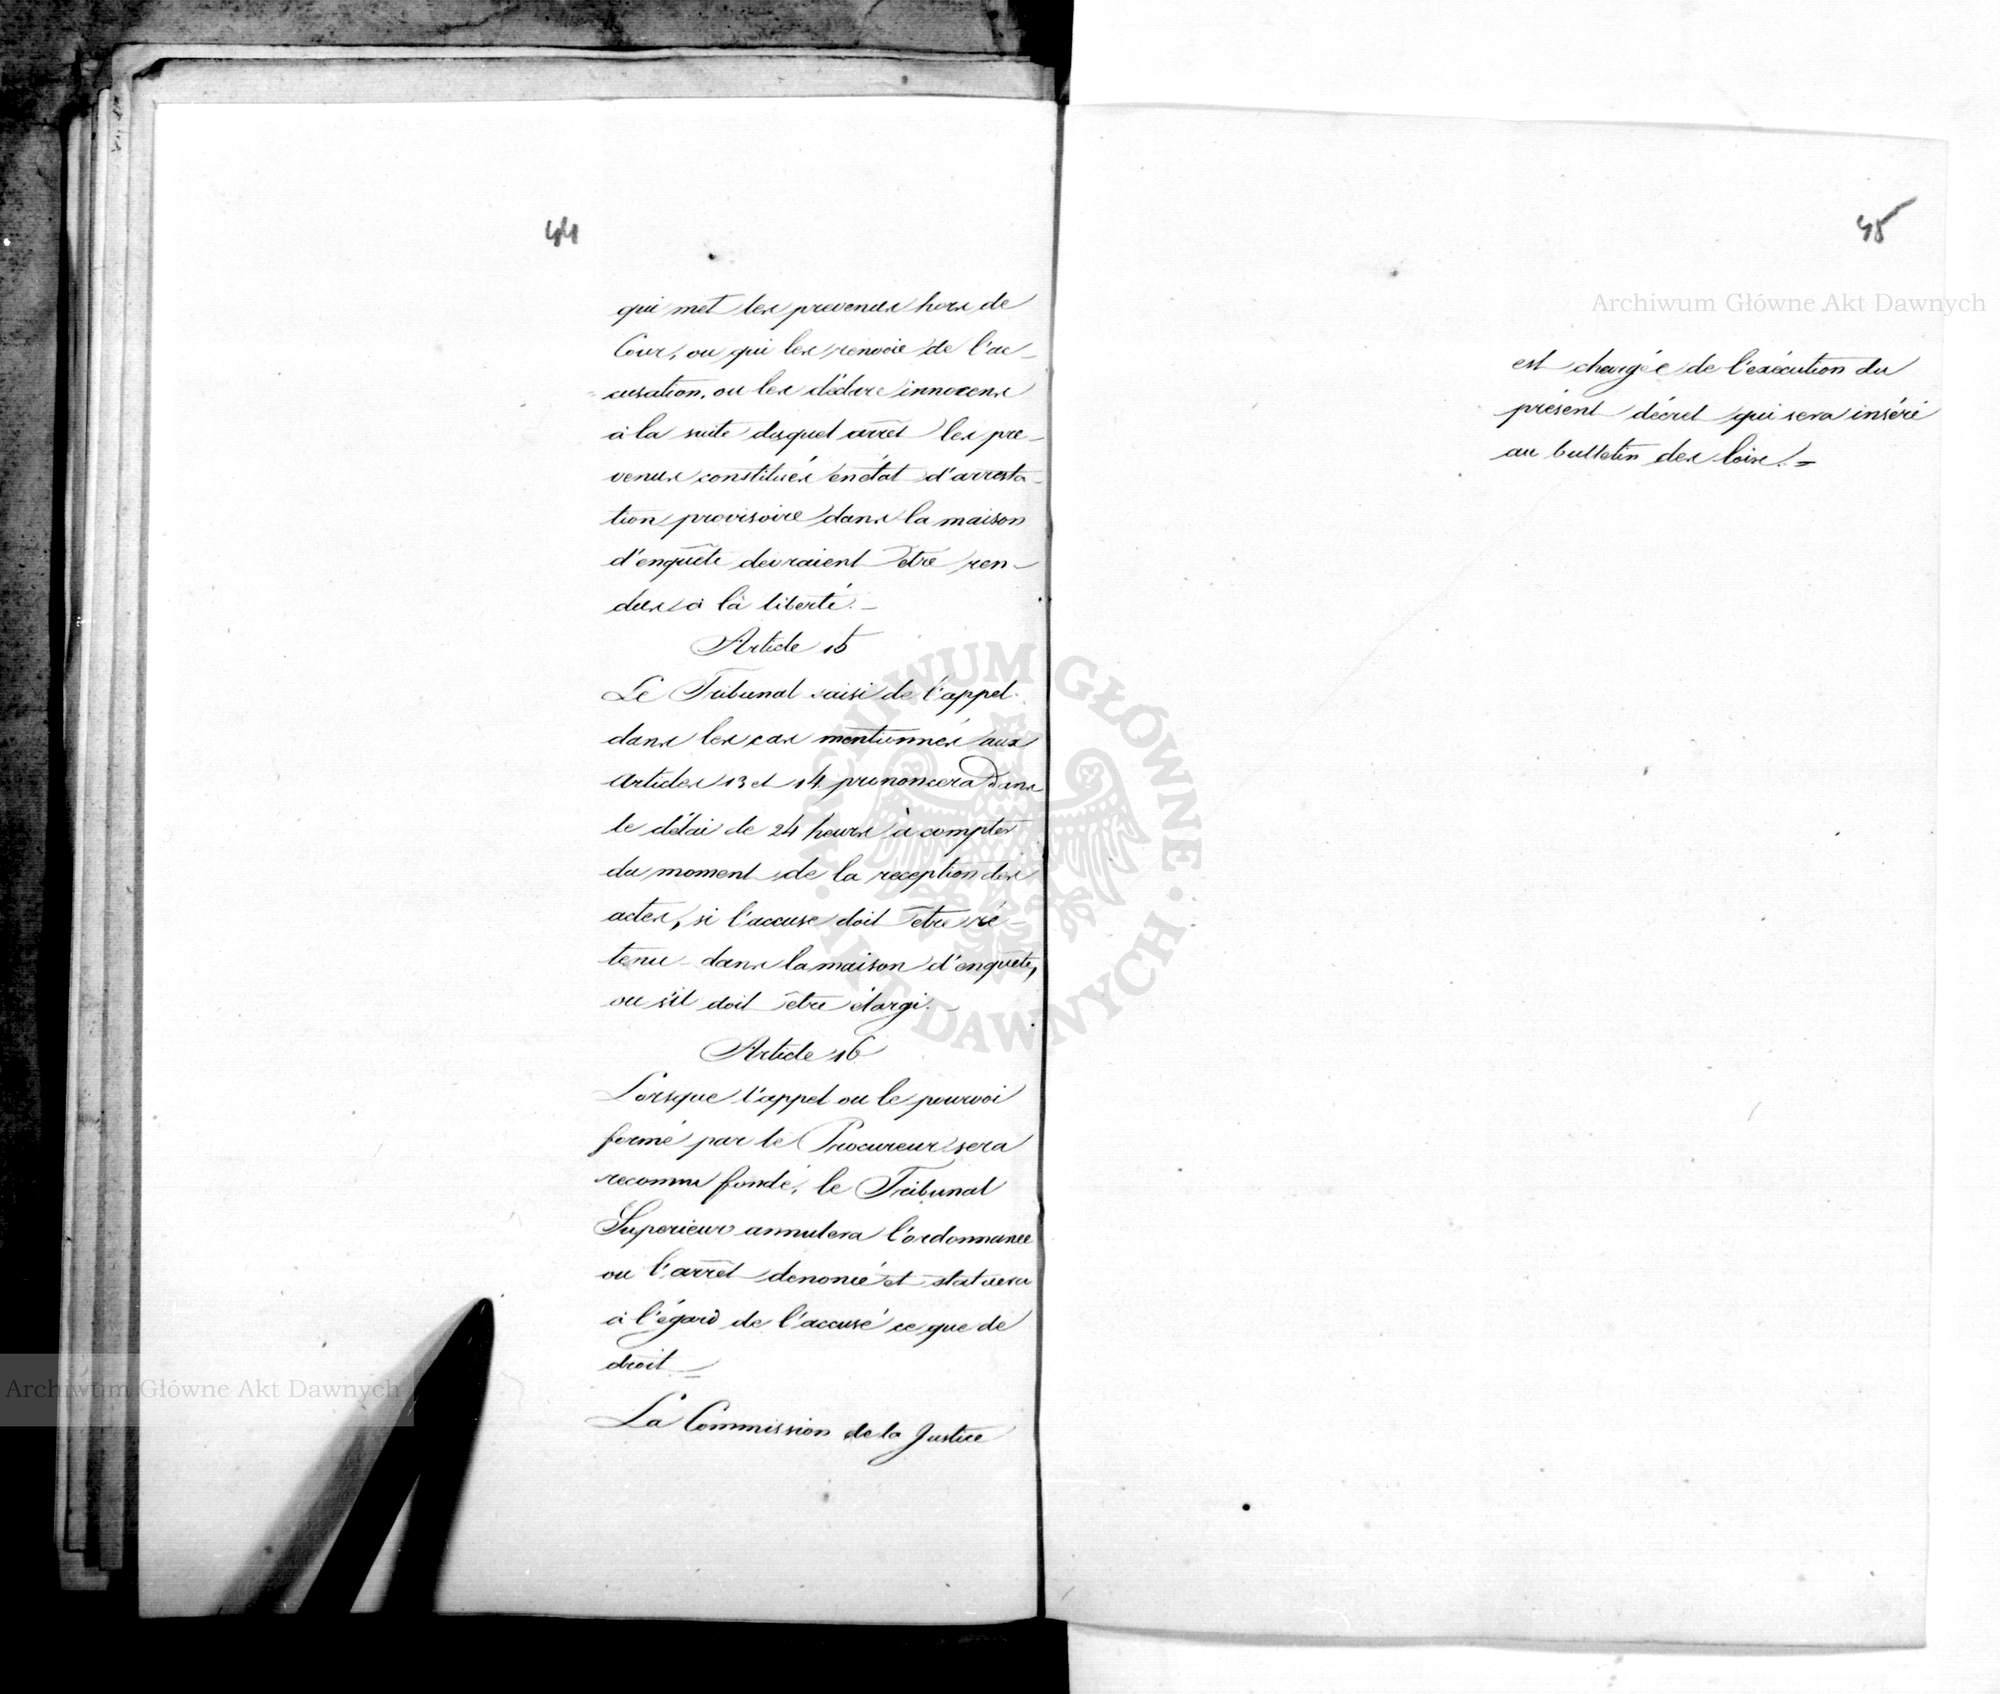 44
qui met les prevenus hors de
Cour, ou qui les renvoie de l'ac-
cusation, ou les déclare innocens
à la suite duquel arrêt les pre-
venus constitués en état d'arresta-
tion provisoire dans la maison
d'enquête devraient être ren-
dus à la liberté.-
Article 15
Le Tribunal saisi de l'appel
dans les cas mentionnés aux
articles 13 et 14 prononcera dans
le délai de 24 heures à compter
du moment de la reception des
actes, si l'accusé doit être ré-
tenu dans la maison d'enquête,
ou s'il doit être élargi.-
Article 16
Lorsque l'appel ou le pourvoi
formé par le Procureur sera
reconnu fondé, le Tribunal
Superieur annulera l'ordonnance
ou l'arrêt denoncé et statuera
à l'égard de l'accusé ce que de
droit.=
La Commission de la Justice
45
est chargée de l'exécution du
présent décret qui sera inséré
au bulletin des loix.=
Archiwum Główne Akt Dawnych
Archiwum Główne Akt Dawnych
ARCHIWUM GŁÓWNE · AKT DAWNYCH ·